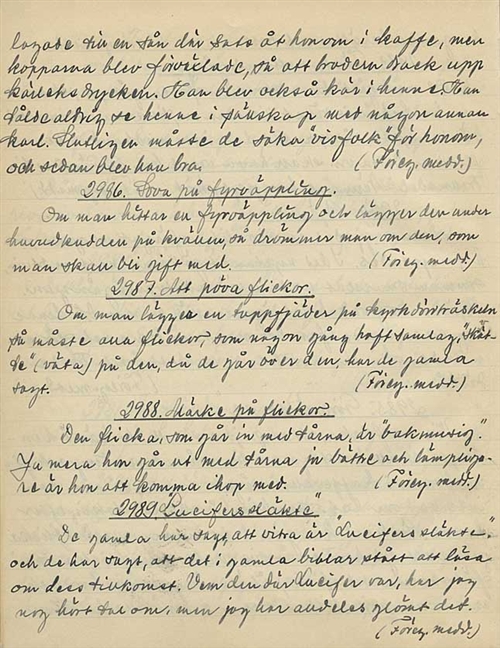 lagade till en sån där sats åt honom i kaffe, men
kopparna blev förväxlade, så att brodern drack upp
kärleksdrycken. Han blev också kär i henne. Han
tålde aldrig se henne i sällskap med någon annan
karl. Slutligen måste de söka "visfolk" för honom,
och sedan blev han bra. (Föreg. medd.)
2986. Sova på fyrväppling.
Om man hittar en fyrväppling och lägger den under
huvudkudden på kvällen, så drömmer man om den, som
man skall bli gift med. (Föreg. medd.)
2987. Att pröva flickor.
Om man lägger en tuppfjäder på kyrkdörströskeln
så måste alla flickor, som någon gång haft samlag,
(väta) på den, då de går över den, har de gamla
sagt. (Föreg. medd.)
2988. Märke på flickor.
Den flicka, som går in med tårna, är "bakmusig".
Ju mera hon går ut med tårna ju bättre och lämpliga-
re är hon att komma ihop med. (Föreg. medd.)
2989 "Lucifers släkte"
De gamla har sagt, att vitra är "Lucifers släkte",
och de har sagt, att det i gamla biblar stått att läsa
om dess tillkomst. Vem den där Lucifer var, har jag
nog hört tal om, men jag har alldeles glömt det.
(Föreg. medd.)